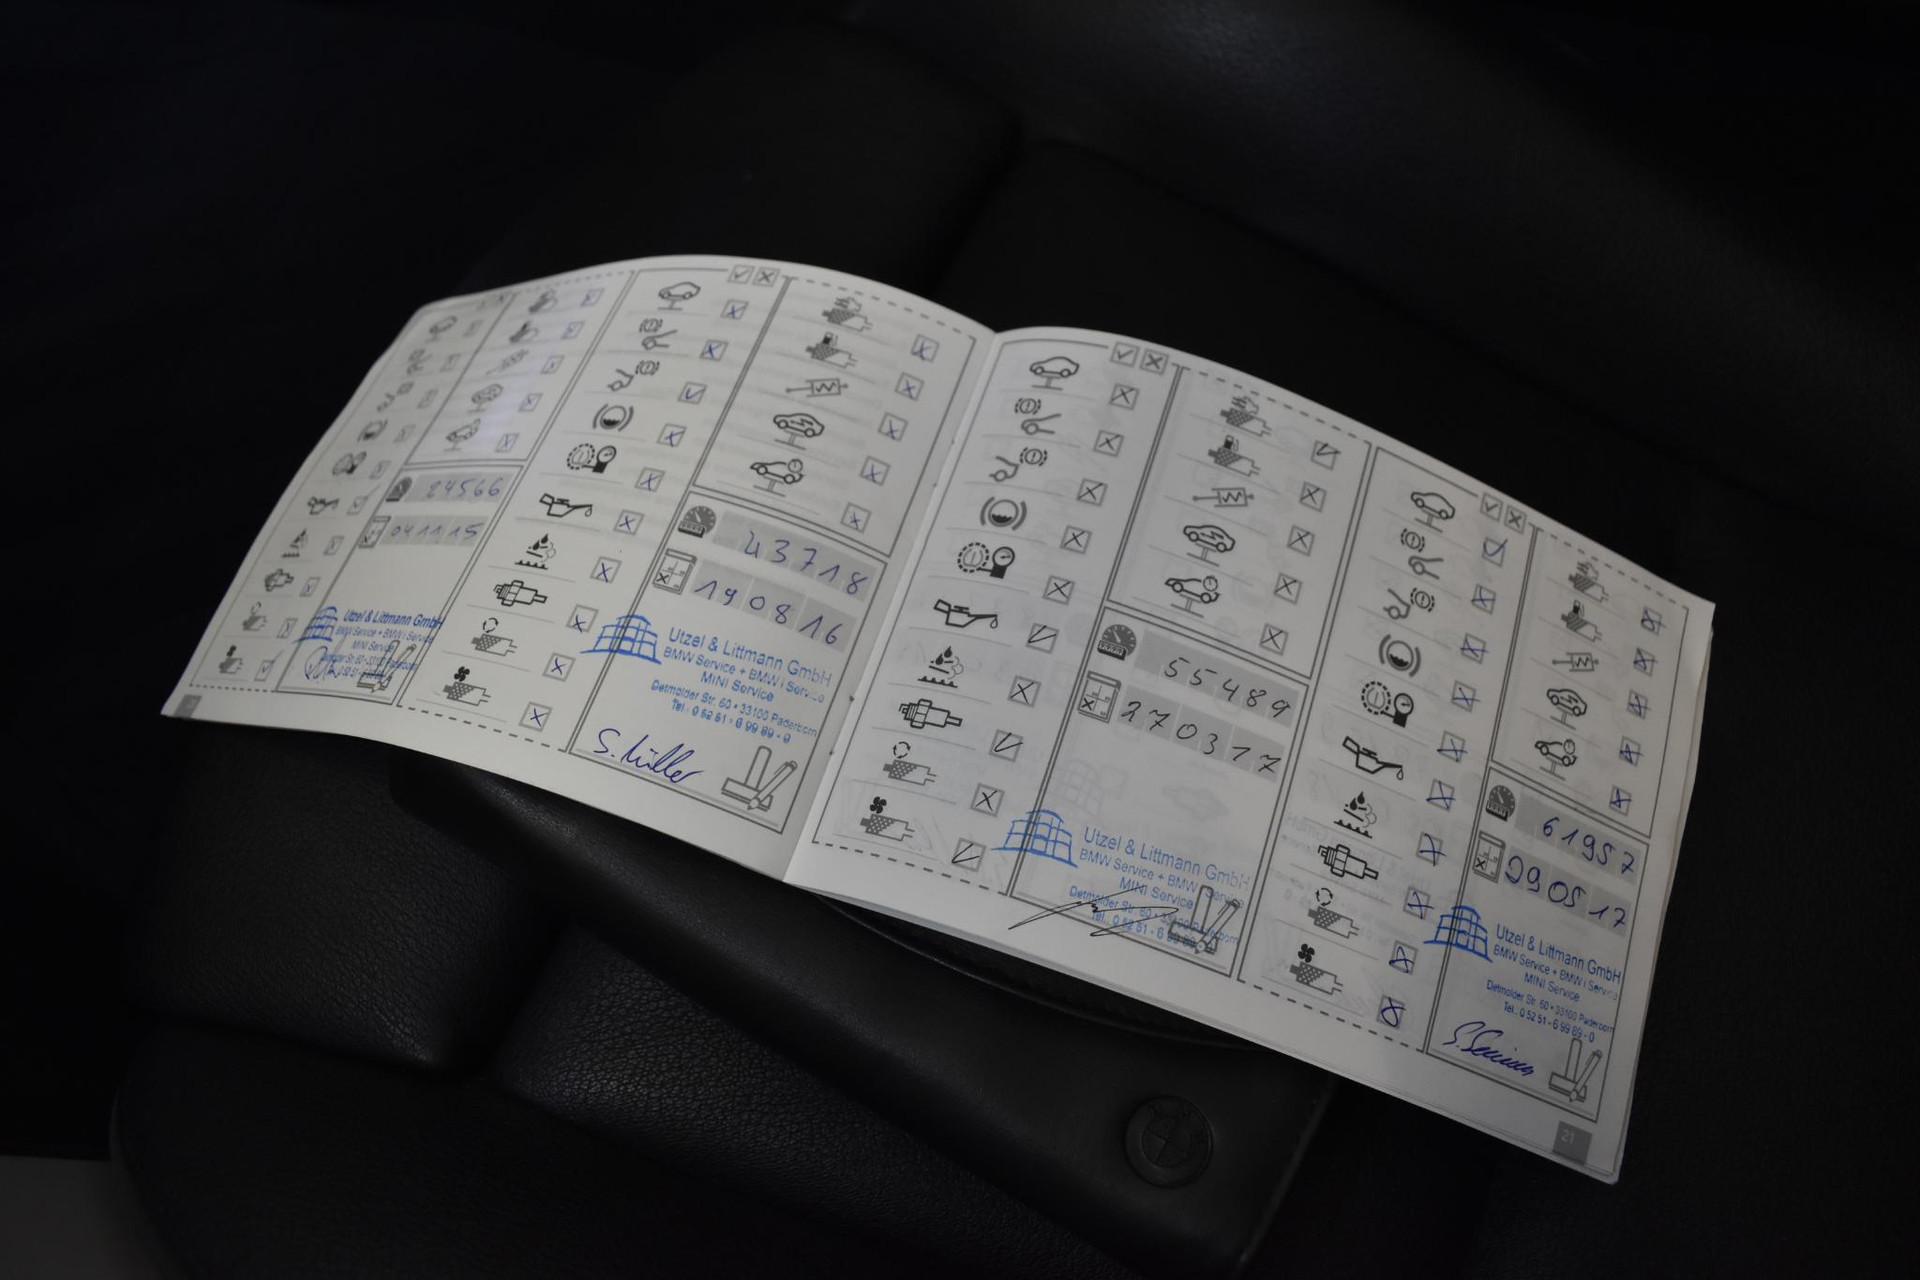 24566
041115
Utzel & Littmann GmbH
BMW Service + BMW i Service
MINI Service
43718
190816
Utzel & Littmann GmbH
BMW Service + BMW i Service
MINI Service
Detmolder Str. 60 • 33100 Paderborn
Tel.: 0 52 51 - 6 99 89 - 0
S. Müller
55489
270317
Utzel & Littmann GmbH
BMW Service + BMW i Service
MINI Service
Detmolder Str. 60 • 33100 Paderborn
Tel.: 0 52 51 - 6 99 89
61957
090517
Utzel & Littmann GmbH
BMW Service + BMW i Service
MINI Service
Detmolder Str. 60 • 33100 Paderborn
Tel.: 0 52 51 - 6 99 89 - 0
21